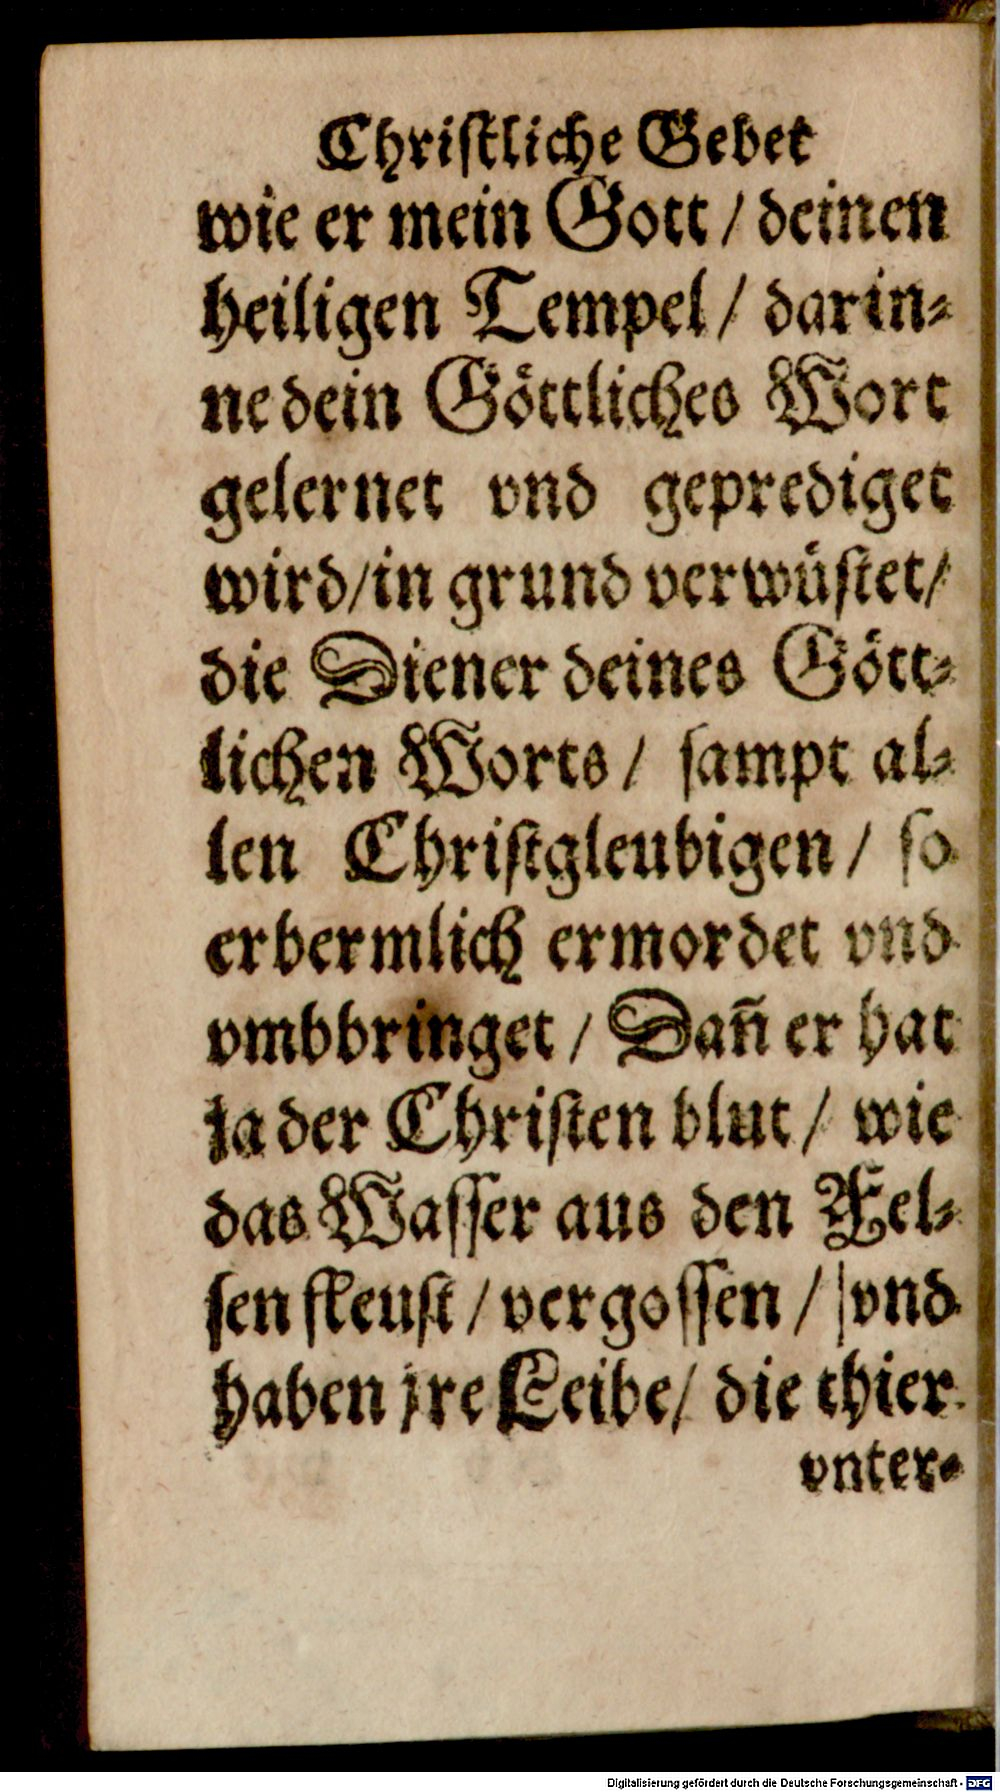 Chriſtliche Gebet
wie er mein Gott / deinen
heiligen Tempel / darin⸗
ne dein Göttliches Wort
gelernet vnd geprediget
wird/in grund verwüſtet/
die Diener deines Gött⸗
lichen Worts / ſampt al⸗
len Chriſtgleubigen / ſo
erbermlich ermordet vnd
vmbbringet / Dan̄ er hat
ja der Chriſten blut / wie
das Waſſer aus den Fel⸗
ſen fleuſt / vergoſſen / vnd
haben jre Leibe / die thier
vnter⸗
Digitalisierung gefördert durch die Deutsche Forschungsgemeinschaft - DFG